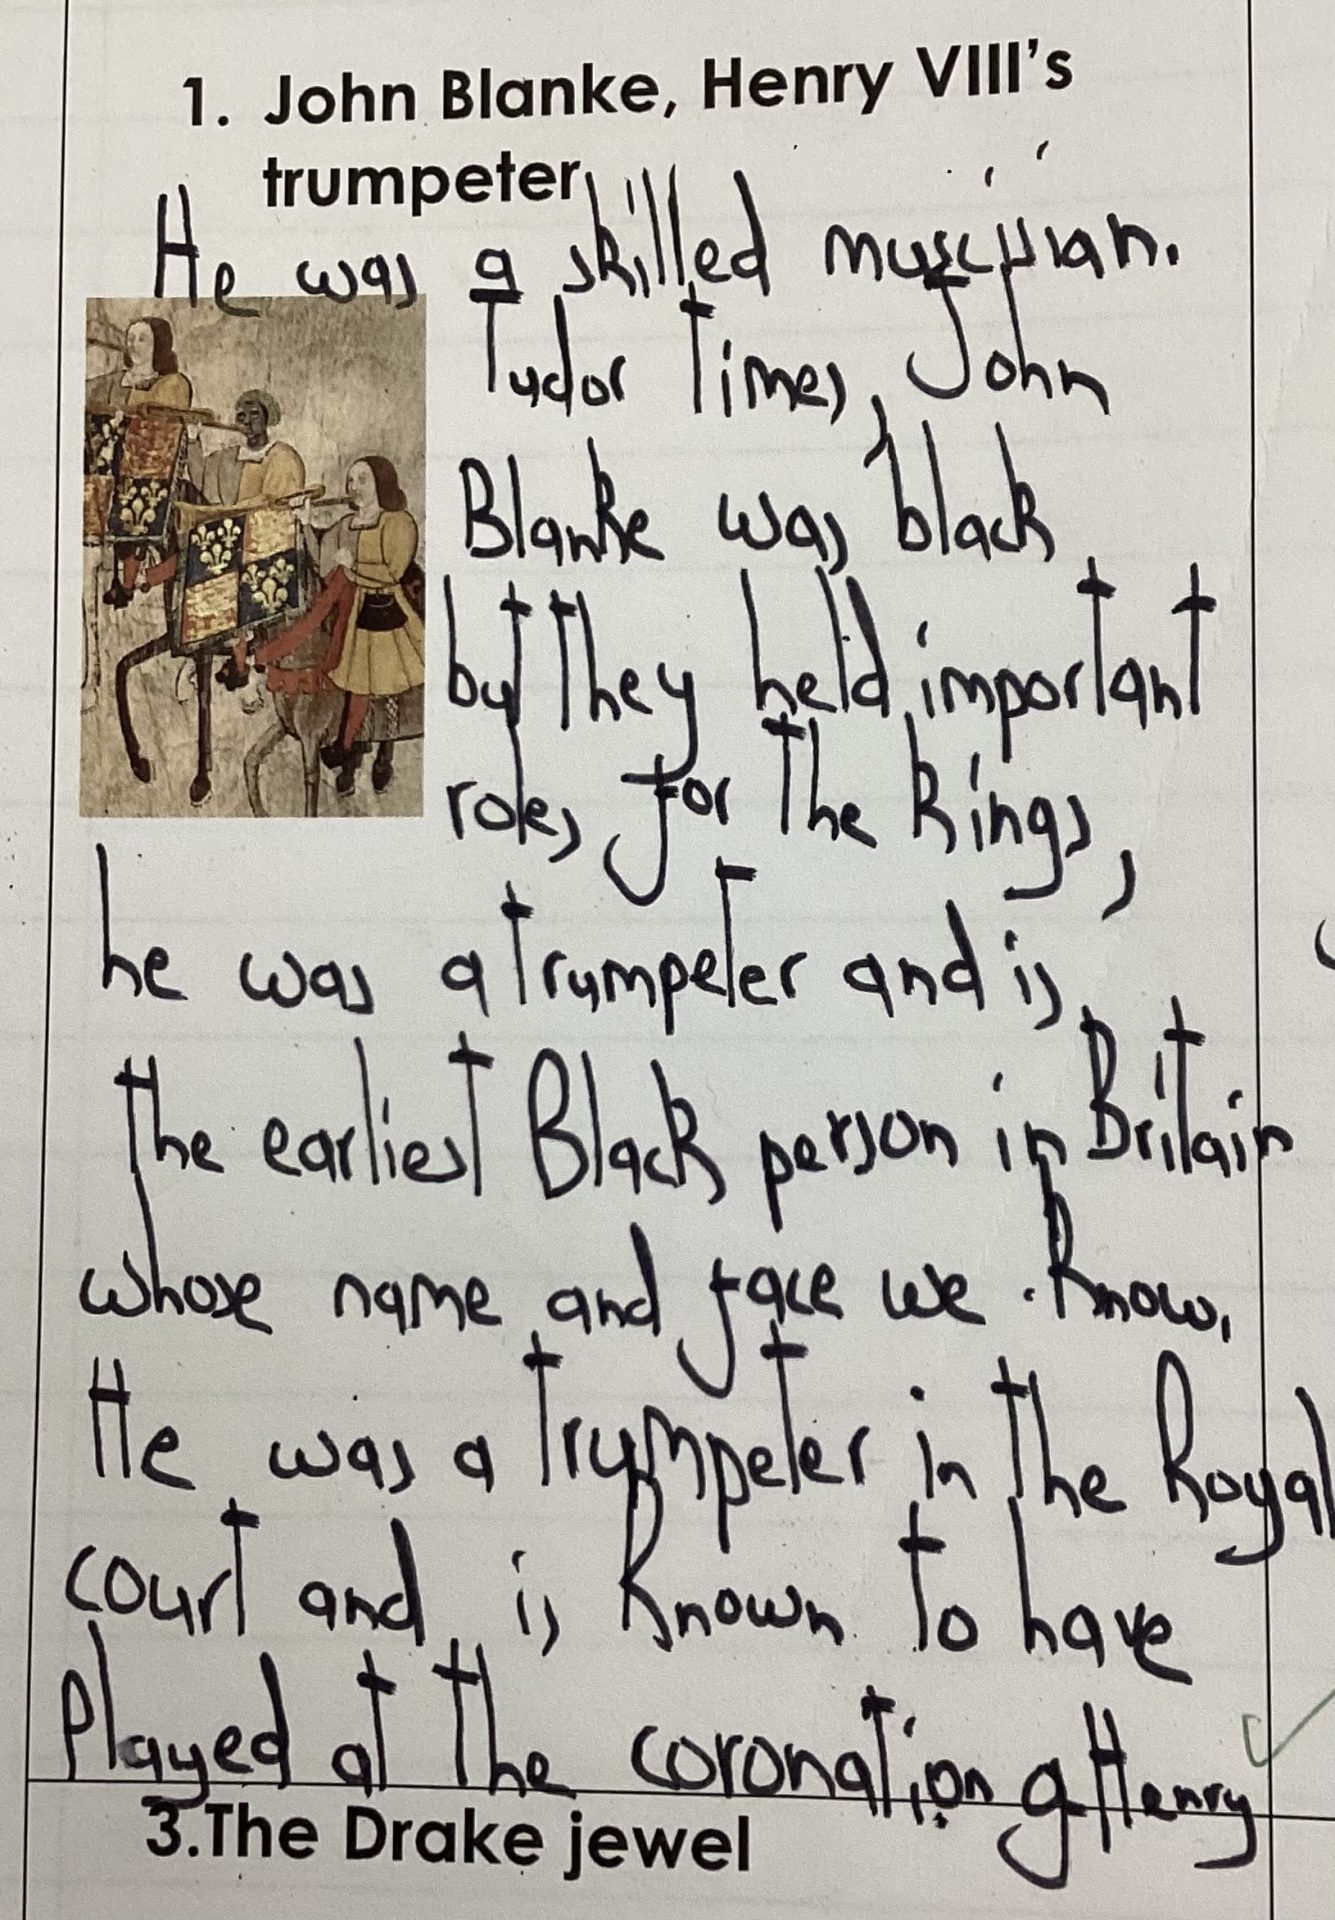 1. John Blanke, Henry VIII's
trumpeter
He was a skilled muscisian.
Tudor Times, John
Blanke was black
but they held important
roles for the kings,
he was a trumpeter and is
the earliest Black person in Britain
whose name and face we know.
He was a trumpeter in the Royal
court and is known to have
Played at the coronation of Henry
3.The Drake jewel